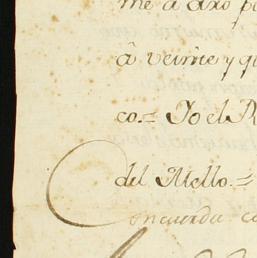 me a dho po
â veinte y qu
co = Yo el R
del Mello =
Concuerda co